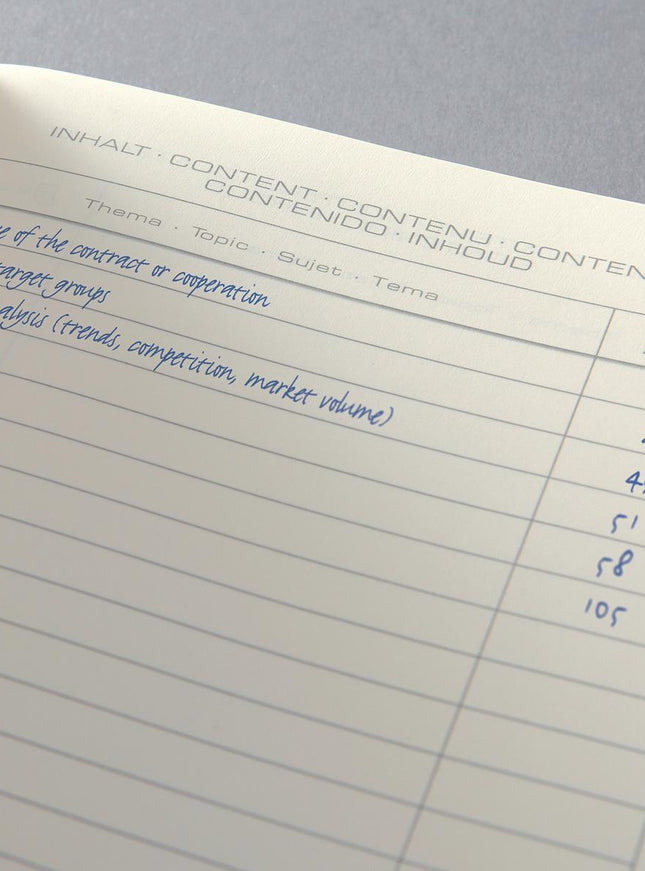 INHALT · CONTENT · CONTENU ·
CONTENIDO · INHOUD
Thema · Topic · Sujet · Tema
of the contract or cooperation
target groups
(trends, competition, market volume)
51
58
105